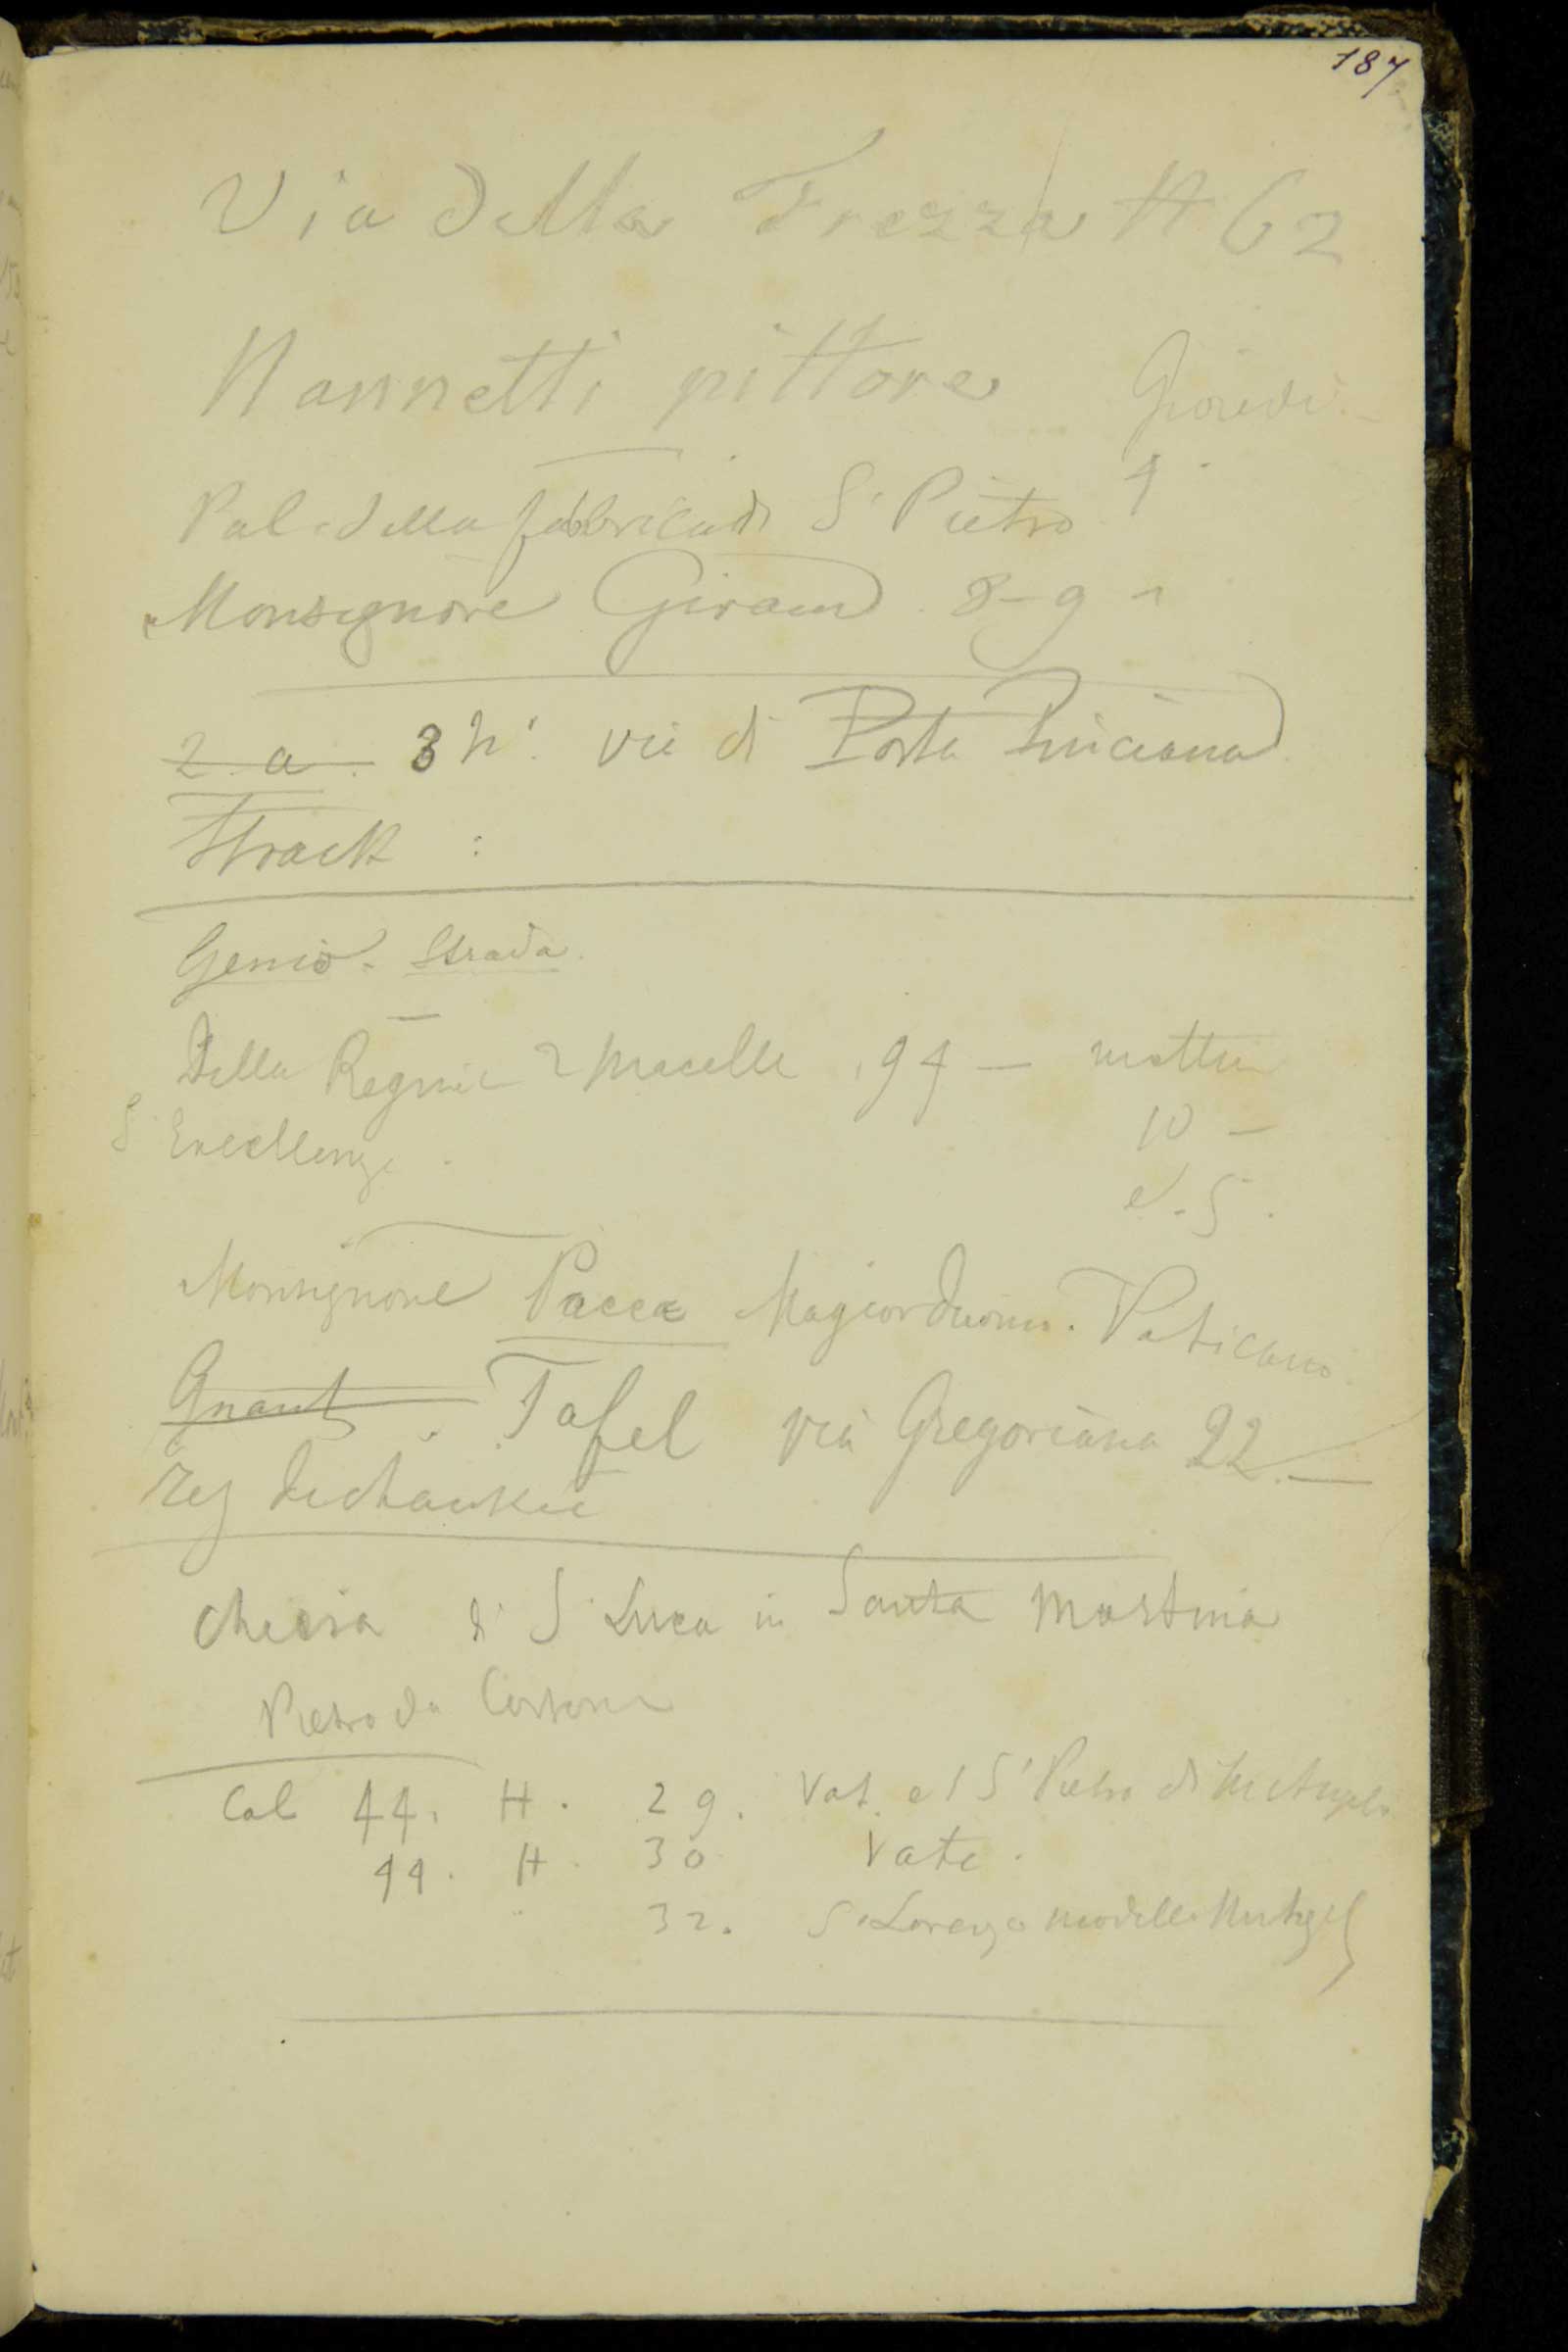 187
Via della Frezza N 62
Nannetti pittore
Pal. della fabbrica di S. Pietro 4
Monsignore Giraud 8-9
2 a. 3 h. via di Porta Pinciana
Strack :
Genio. Strada
Della Regina 2 Macelle 94 —
S Excellenz
10 —
e. 5.
Monsignore Pacca Magiorduomo. Vaticano
Tafel via Gregoriana 22 —
Chiesa di S Luca in Santa Martina
Pietro da Cortona
Cal 44. H. 29. Vat. e S Pietro di
44. H. 30 Vatc.
32. S. Lorenzo modelle